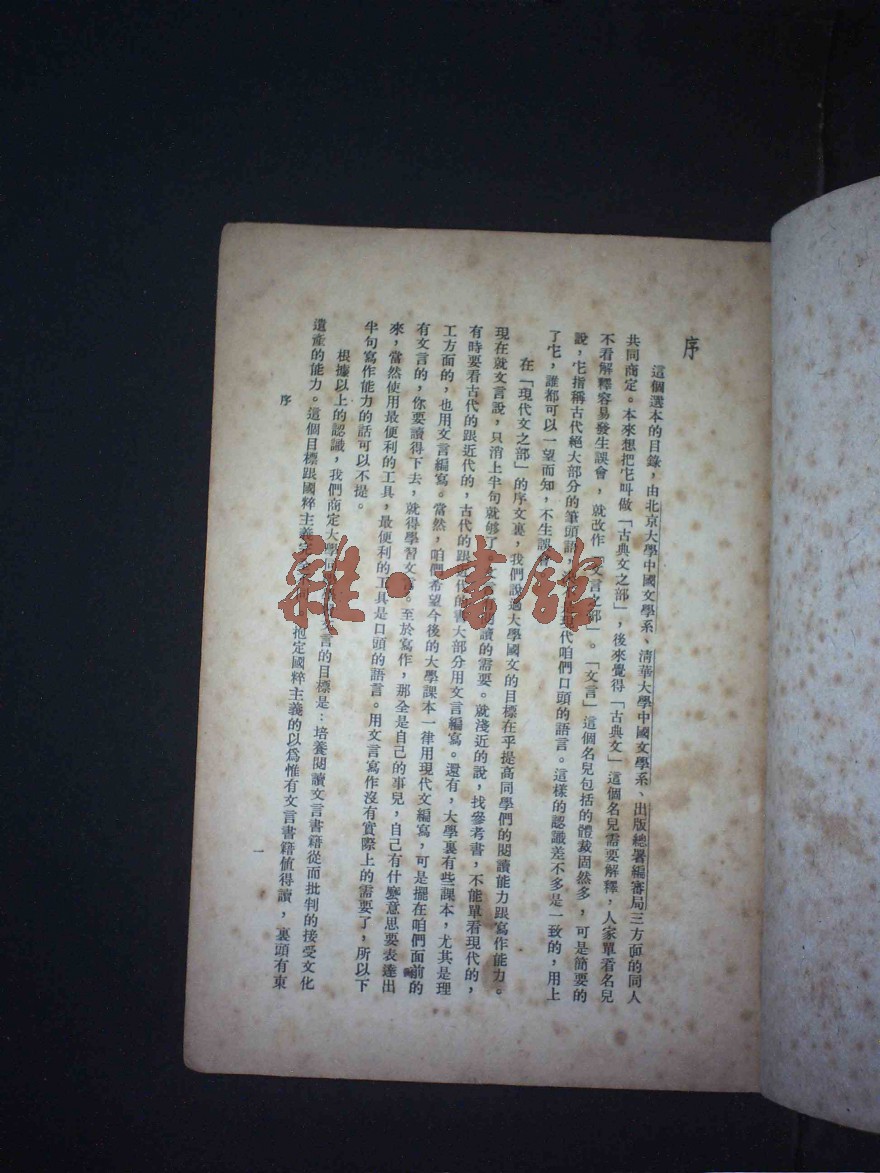 序
這個選本的目錄，由北京大學中國文學系、清華大學中國文學系、出版總署編審局三方面的同人
共同商定。本來想把它叫做「古典文之部」，後來覺得「古典文」這個名兒需要解釋，人家單看名兒
不看解釋容易發生誤會，就改作「文言之部」。「文言」這個名兒包括的體裁固然多，可是簡要的
說，它指稱古代絕大部分的筆頭語，現代咱們口頭的語言。這樣的認識差不多是一致的，用上
了它，誰都可以一望而知，不生誤會
在「現代文之部」的序文裏，我們說過大學國文的目標在乎提高同學們的閱讀能力跟寫作能力。
現在就文言說，只消上半句就够了，文言閱讀的需要。就淺近的說，找參考書，不能單看現代的，
有時要看古代的跟近代的，古代的跟近代的書大部分用文言編寫。還有，大學裏有些課本，尤其是理
工方面的，也用文言編寫。當然，咱們希望今後的大學課本一律用現代文編寫，可是擺在咱們面前的
有文言的，你要讀得下去，就得學習文言。至於寫作，那全是自己的事兒，自己有什麼意思要表達出
來，當然使用最便利的工具，最便利的工具是口頭的語言。用文言寫作沒有實際上的需要了，所以下
半句寫作能力的話可以不提。
根據以上的認識，我們商定大學言的目標是：培養閱讀文言書籍從而批判的接受文化
遺產的能力。這個目標跟國粹主義抱定國粹主義的以爲惟有文言書籍值得讀，裏頭有東
序
一
雜·書館